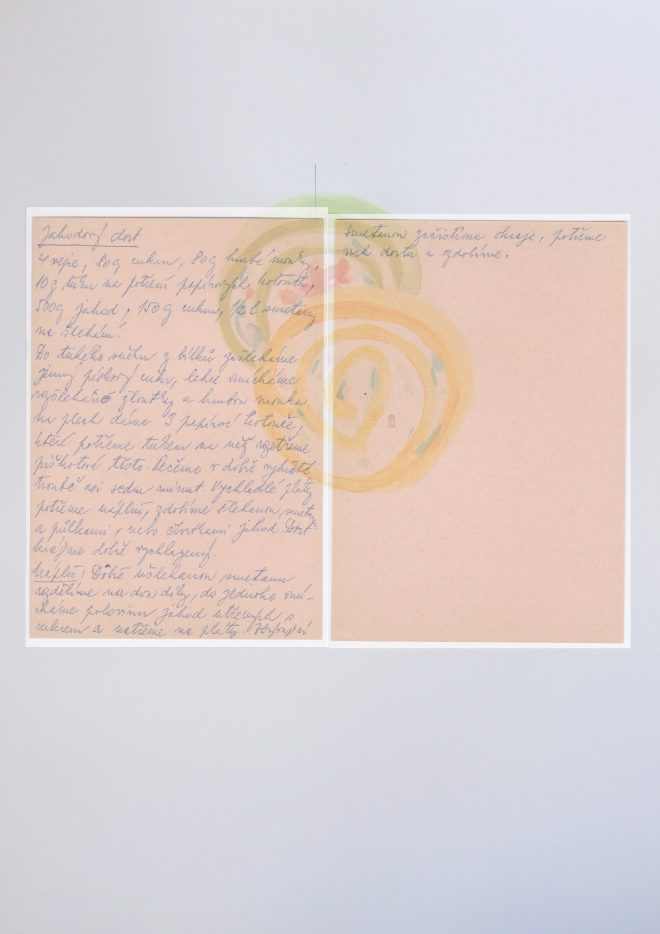 Jahodový dort
4 vejce, 80g cukru, 80g hrubé mouky,
10g tuku na potření papírových kotoučů,
500g jahod, 150g cukru, 1/2 l smetany
na šlehání.
Do tuhého sněhu z bílků zašleháme
jemný pískový cukr, lehce vmícháme
rozšlehané žloutky a hrubou mouku
Na plech dáme 3 papírové kotouče,
které potřeme tukem na něž rozetřeme
piškotové těsto. Pečeme v dobře vyhřáté
troubě asi sedm minut. Vychladlé pláty
potřeme náplní, zdobíme šlehanou smetanou
a půlkami, nebo čtvrtkami jahod. Dort
krájíme dobře vychlazený.
Náplň: Dobře ušlehanou smetanu
rozdělíme na dva díly, do jednoho vmí-
cháme polovinu jahod utřených s
cukrem a natřeme na pláty. Zbývající
smetanou začistíme okraje, potřeme
vrch dortu a zdobíme.